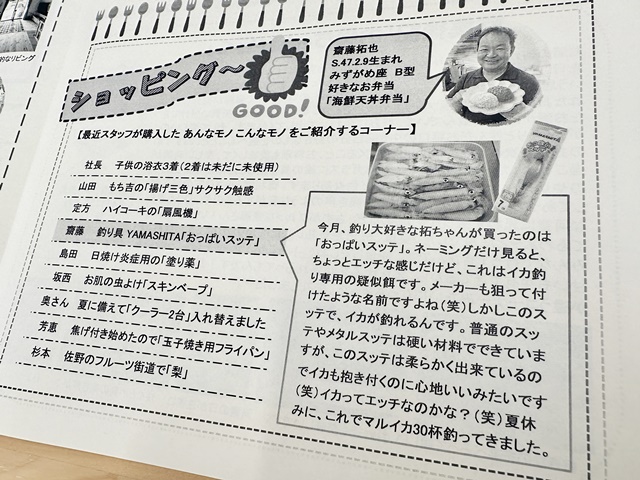 的なリビング
ショッピング〜
GOOD!
齋藤拓也
S.47.2.9生まれ
みずがめ座 B型
好きなお弁当
「海鮮天丼弁当」
【最近スタッフが購入した あんなモノ こんなモノ をご紹介するコーナー】
社長 子供の浴衣3着(2着は未だに未使用)
山田 もち吉の「揚げ三色」サクサク触感
定方 ハイコーキの「扇風機」
齋藤 釣り具 YAMASHITA「おっぱいスッテ」
島田 日焼け炎症用の「塗り薬」
坂西 お肌の虫よけ「スキンベープ」
奥さん 夏に備えて「クーラー2台」入れ替えました
芳恵 焦げ付き始めたので「玉子焼き用フライパン」
杉本 佐野のフルーツ街道で「梨」
YAMASHITA
今月、釣り大好きな拓ちゃんが買ったのは
「おっぱいスッテ」。ネーミングだけ見ると、
ちょっとエッチな感じだけど、これはイカ釣
り専用の疑似餌です。メーカーも狙って付
けたような名前ですよね(笑)しかしこのス
ッテで、イカが釣れるんです。普通のスッ
テやメタルスッテは硬い材料でできていま
すが、このスッテは柔らかく出来ているの
でイカも抱き付くのに心地いいみたいです
(笑)イカってエッチなのかな?(笑)夏休
みに、これでマルイカ30杯釣ってきました。